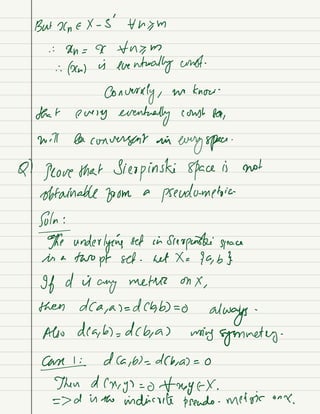 But xn ∈ X - S' ∀ n ≥ m
∴ xn = x ∀ n ≥ m
∴ (xn) is eventually const.
Conversely, we know
that every eventually const
will be convergent in every space.
Q) Prove that Sierpinski space is not
obtainable from a pseudo-metric.
Soln:
The underlying set in Sierpinski space
is a two pt set. Let X = {a,b}
If d is any metric on X,
then d(a,a) = d(b,b) = 0 always.
Also d(a,b) = d(b,a) using symmetry.
Case 1: d(a,b) = d(b,a) = 0
Then d(x,y) = 0 ∀ x,y ∈ X.
=> d is the indiscrete pseudo-metric on X.